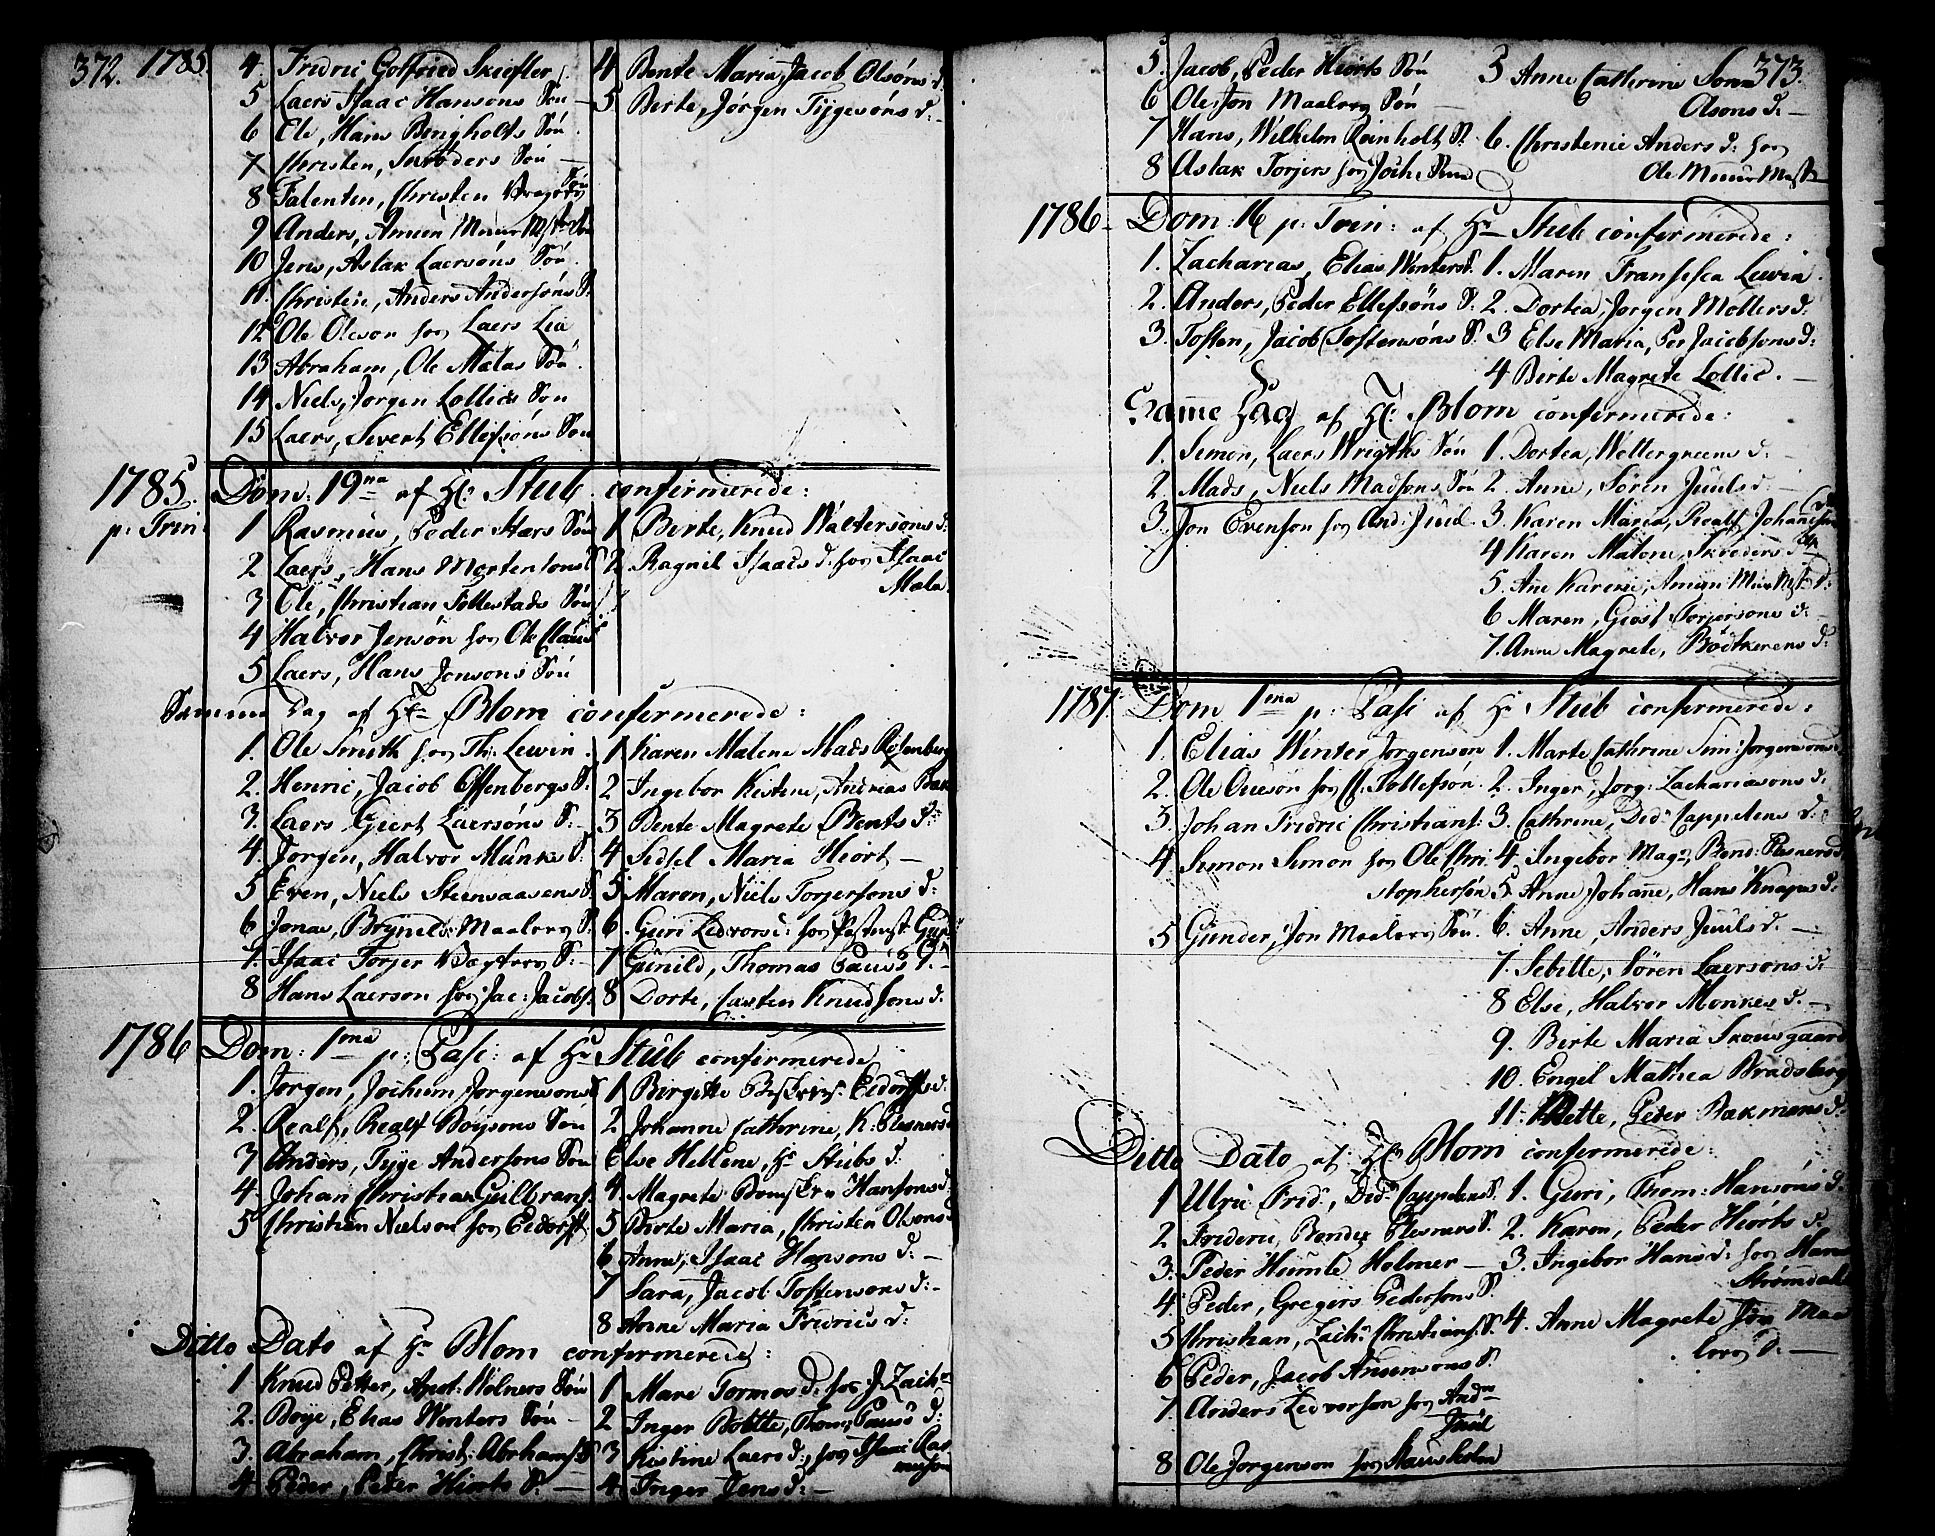 372. 1785.
4. Fridric Gotfried Skiefler
5 Laers Isaac Hansons Søn
6 Ole, Hans Bingholts Søn
7 Christen, Snröders Søn
8 Falentin, Christen Vragøers Søn
9 Anders, Amün Müür Mstr Søn
10 Jens, Aslak Laersøns Søn
11. Christen, Anders Andersøns S.
12 Ole Oleson hos Laers Lia
13 Abraham, Ole Malas Søn
14 Niels, Jørgen Lollies Søn
15 Laers, Sivert Ellefsøns Søn
4 Bente Maria, Jacob Olsøns d.
5 Berte, Jörgen Tygesøns d.
1785. Dom: 19na af Hr: Stub confirmerede:
p: Trin:
1 Rasmus, Peder Stars Søn
2 Laers, Hans Mortensons S
3 Ole, Christian Follestads Søn
4 Halvor Jensøn hos Ole Claus
5 Laers, Hans Jonsons Søn
1 Berte, Knud Waltersons d:
2 Ragnil Isaacs d: hos Isaac
Mala
Samme Dag af Hr Blom confermerede:
1. Ole Smith hos Th: Lewin
2. Henric, Jacob Effenbergs S:
3. Laers Giert Laersøns S:
4 Jørgen, Halvor Münkes S:
5 Even, Niels Steensaasens S.
6 Jonas, Brynel Maaløerg S.
7. Isaac Torjer Bagtrog S:
8 Hans Laerson hos Jac: Jacobs.
1 Karen Malene Mads Rosenberg
2 Ingebor Kistene, Andreas Bak
3 Bente Magrete Bents d:
4 Sidsel Maria Hiort
5 Maren, Niels Torjersons d:
6. Guri Ledvors d: hos Postmst
7 Gunild, Thomas Paus's d.
8 Dorte, Carsten Knudsons d.
1786 Dom: 1ma p: Pasc: af Hr Stub confermerede
1. Jørgen, Jochum Jorgensons
2. Realf, Realf Boysons Søn
3 Anders, Tyge Andersons Søn
4 Johan Christian Gulbrans.
5 Christian Nielson hos Eidorff
1 Birgitte Eidorffs d:
2 Johanne Catherine, K: Plesners
Else Hellene, Hr Stubs d:
4. Magrete Hansons d
5 Birte Maria, Christen Olsons d
6 Anne, Isaac Hansons d:
7 Sara, Jacob Tostensons d:
8 Anne Maria Fridrics d:
Ditto Dato af Hr Blom confermerede:
1 Knud Petter, Apot: Wolners Søn
2. Boye, Elias Winters Søn
3. Abraham, Christ: Abrahams S
4 Peder, Peter Hiorts S.
1 Mare Tormos d: hos J Zach
2 Inger Bolette, Thom: Paus's d:
3 Kistine Laers d: hos Isaac Ras
muson
4. Inger Jens d:
373.
5. Jacob, Peder Hiorts Søn
6 Ole, Jon Maaløerg Søn
7 Hans, Wilhelm Reinholt S:
8 Aslak Torjers hos Joche
5 Anne Catherine Soren
Olsons d.
6. Christenie Anders d: hos
Ole Müür Mstr
1786. Dom: 16 p: Trin: af Hr Stub confermerede:
1. Zacharias, Elias Winters S.
2. Anders, Peder Ellefsøns S.
3. Tosten, Jacob Tostensøns S.
1. Maren Fransisca Lewin
2. Dortea, Jorgen Mollers d:
3 Else Maria, Per Jacobsons d:
4 Birte Magrete Lollie.
Samme Dag af Hr: Blom confermerede:
1. Simon, Laers Wrigths Søn
2. Mads, Niels Madsons Søn
3. Jon Evenson hos And: Juul.
1. Dortea, Woltergreens d:
2. Anne, Søren Juuls d.
3. Karen Maria, Realf Johannesøn
4 Karen Malene, Skreders d
5. Ane Karene, Amün Müür Mstr d:
6 Maren, Giost Torjersons d:
7. Anne Magrete, Bödtkerens d:
1787. Dom 1ma p: Pasc af Hr Stub confermerede:
1. Elias Winter Jorgenson
2. Ole hos Tollefsøn
3. Johan Fridric Christians:
4 Simon Simon hos Ole Chri
stophersøn
5 Gunder, Jon Maaløerg Søn
1. Marte Cathrine Sim: Jorgensons
2. Inger, Jorg: Zachariasons d:
3. Cathrine, Did: Cappelens d:
4. Ingebor Mag:, Bend: Plesners d
5. Anne Johanne, Hans Knapes d:
6. Anne, Anders Juuls d.
7. Sebille, Søren Laersons d:
8 Else, Halvor Monkes d.
9. Birte Maria Skousgaard
10. Engel Mathea Bradsberg
11. Mette, Peder Bakmans d:
Ditto Dato af Hr Blom confermerede:
1 Ulric Frid:, Did: Cappelens S.
2 Frideric, Bendix Plesners S.
3. Peder Humle Holmer
4. Peder, Gregers Pedersons S.
5 Christian, Zach: Christians: S.
6 Peder, Jacob Ansensons S.
7. Anders Ledvorson hos And:
Juul
8 Ole Jorgenson hos Stausholm
1. Guri, Thom: Hansøns d:
2. Karen, Peder Hiorts d.
3. Ingebor Hans d: hos Hans
Strømdal
4. Anne Magrete Jon Maa
løerg d: